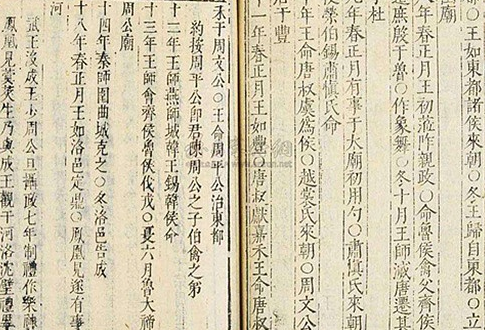 〇王如東都諸侯來朝〇冬王歸自東都〇立
圉廟
八年春正月王初涖阼親政〇命魯侯禽父齊侯
遷庶殷于魯〇作象舞〇冬十月王師滅唐遷其
于杜
九年春正月有事于太廟初用勺〇肅慎氏來朝
使榮伯錫肅慎氏命
十年王命唐叔虞為侯〇越裳氏來朝〇周文公
居于豐
十一年春正月王如豐〇唐叔獻嘉禾王命唐叔
禾于周文公〇王命周平公治東都
約按周平公即君陳周公之子伯禽之弟
十二年王師燕師城韓王錫韓侯命
十三年王師會齊侯魯侯伐戎〇夏六月魯大禘
周公廟
十四年秦師圍曲城克之〇冬洛邑告成
十八年春正月王如洛邑定鼎〇鳳凰見遂有事
河
武王沒成王少周公旦攝政七年制禮作樂神
鳳凰見蓂莢生乃與成王觀于河洛沈璧禮畢